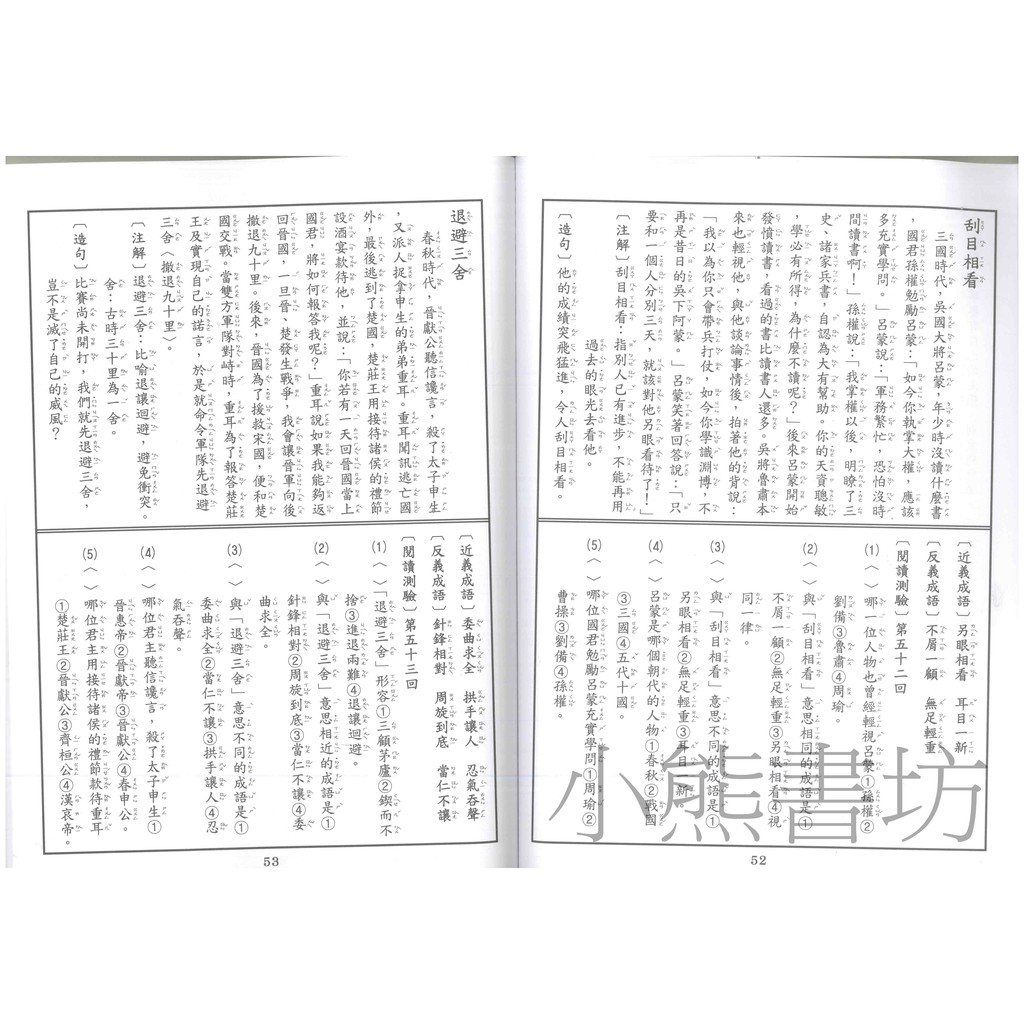 刮目相看
三國時代，吳國大將呂蒙，年少時沒讀什麼書
，國君孫權勉勵呂蒙：「如今你執掌大權，應該
多充實學問。」呂蒙說：「軍務繁忙，恐怕沒時
間讀書啊！」孫權說：「我掌權以後，明瞭了三
史、諸家兵書，自認為大有幫助。你的天資聰敏
，學必有所得，為什麼不讀呢？」後來呂蒙開始
發憤讀書，看過的書比讀書人還多。吳將魯肅本
來也輕視他，與他談論事情後，拍著他的背說：
「我以為你只會帶兵打仗，如今你學識淵博，不
再是昔日的吳下阿蒙。」呂蒙笑著回答說：「只
要和一個人分別三天，就該對他另眼看待了！」
〔注解〕刮目相看：指別人已有進步，不能再用
過去的眼光去看他。
〔造句〕他的成績突飛猛進，令人刮目相看。
〔近義成語〕另眼相看　耳目一新
〔反義成語〕不屑一顧　無足輕重
〔閱讀測驗〕第五十二回
(1)〈　〉哪一位人物也曾經輕視呂蒙①孫權②
劉備③魯肅④周瑜。
(2)〈　〉與「刮目相看」意思相同的成語是①
不屑一顧②無足輕重③另眼相看④視
同一律。
(3)〈　〉與「刮目相看」意思不同的成語是①
另眼相看②無足輕重③耳目一新。
(4)〈　〉呂蒙是哪個朝代的人物①春秋②戰國
③三國④五代十國。
(5)〈　〉哪位國君勉勵呂蒙充實學問①周瑜②
曹操③劉備④孫權。
52
退避三舍
春秋時代，晉獻公聽信讒言，殺了太子申生
，又派人捉拿申生的弟弟重耳。重耳聞訊逃亡國
外，最後逃到了楚國，楚莊王用接待諸侯的禮節
設酒宴款待他，並說：「你若有一天回晉國當上
國君，將如何報答我呢？」重耳說如果我能夠返
回晉國，一旦晉、楚發生戰爭，我會讓晉軍向後
撤退九十里。後來，晉國為了援救宋國，便和楚
國交戰。當雙方軍隊對峙時，重耳為了報答楚莊
王及實現自己的諾言，於是就命令軍隊先退避
三舍〈撤退九十里〉。
〔注解〕退避三舍：比喻退讓迴避，避免衝突。
舍：古時三十里為一舍。
〔造句〕比賽尚未開打，我們就先退避三舍，
豈不是滅了自己的威風？
〔近義成語〕委曲求全　拱手讓人　忍氣吞聲
〔反義成語〕針鋒相對　周旋到底　當仁不讓
〔閱讀測驗〕第五十三回
(1)〈　〉「退避三舍」形容①三顧茅廬②鍥而不
捨③進退兩難④退讓迴避。
(2)〈　〉與「退避三舍」意思相近的成語是①
針鋒相對②周旋到底③當仁不讓④委
曲求全。
(3)〈　〉與「退避三舍」意思不同的成語是①
委曲求全②當仁不讓③拱手讓人④忍
氣吞聲。
(4)〈　〉哪位君主聽信讒言，殺了太子申生①
晉惠帝②晉獻帝③晉獻公④春申公。
(5)〈　〉哪位君主用接待諸侯的禮節款待重耳
①楚莊王②晉獻公③齊桓公④漢哀帝。
53
小熊書坊